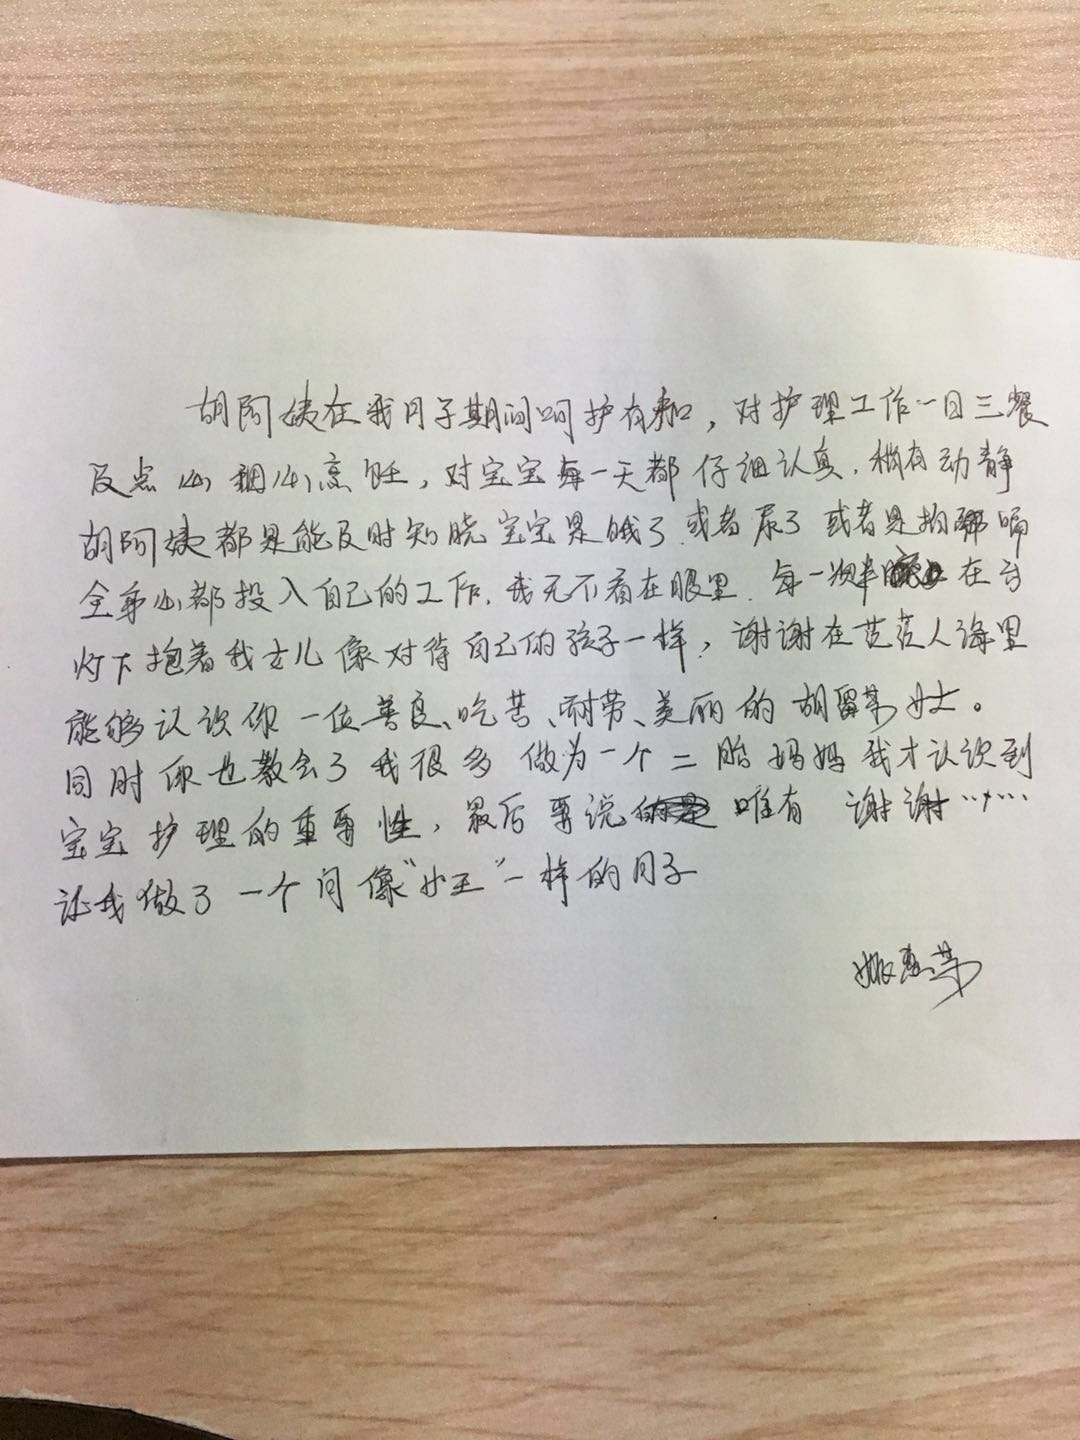 胡阿姨在我月子期间呵护有加，对护理工作一日三餐
及点心细心烹饪，对宝宝每一天都仔细认真，稍有动静
胡阿姨都是能及时知晓宝宝是饿了或者尿了或者是拍嗝
全身心都投入自己的工作，我无不看在眼里，每一次半在台
灯下抱着我女儿像对待自己的孩子一样，谢谢在茫茫人海里
能够认识你一位善良、吃苦、耐劳、美丽的胡翠芬女士。
同时你也教会了我很多做为一个二胎妈妈我才认识到
宝宝护理的重要性，最后要说唯有谢谢……
让我做了一个月像“女王”一样的月子